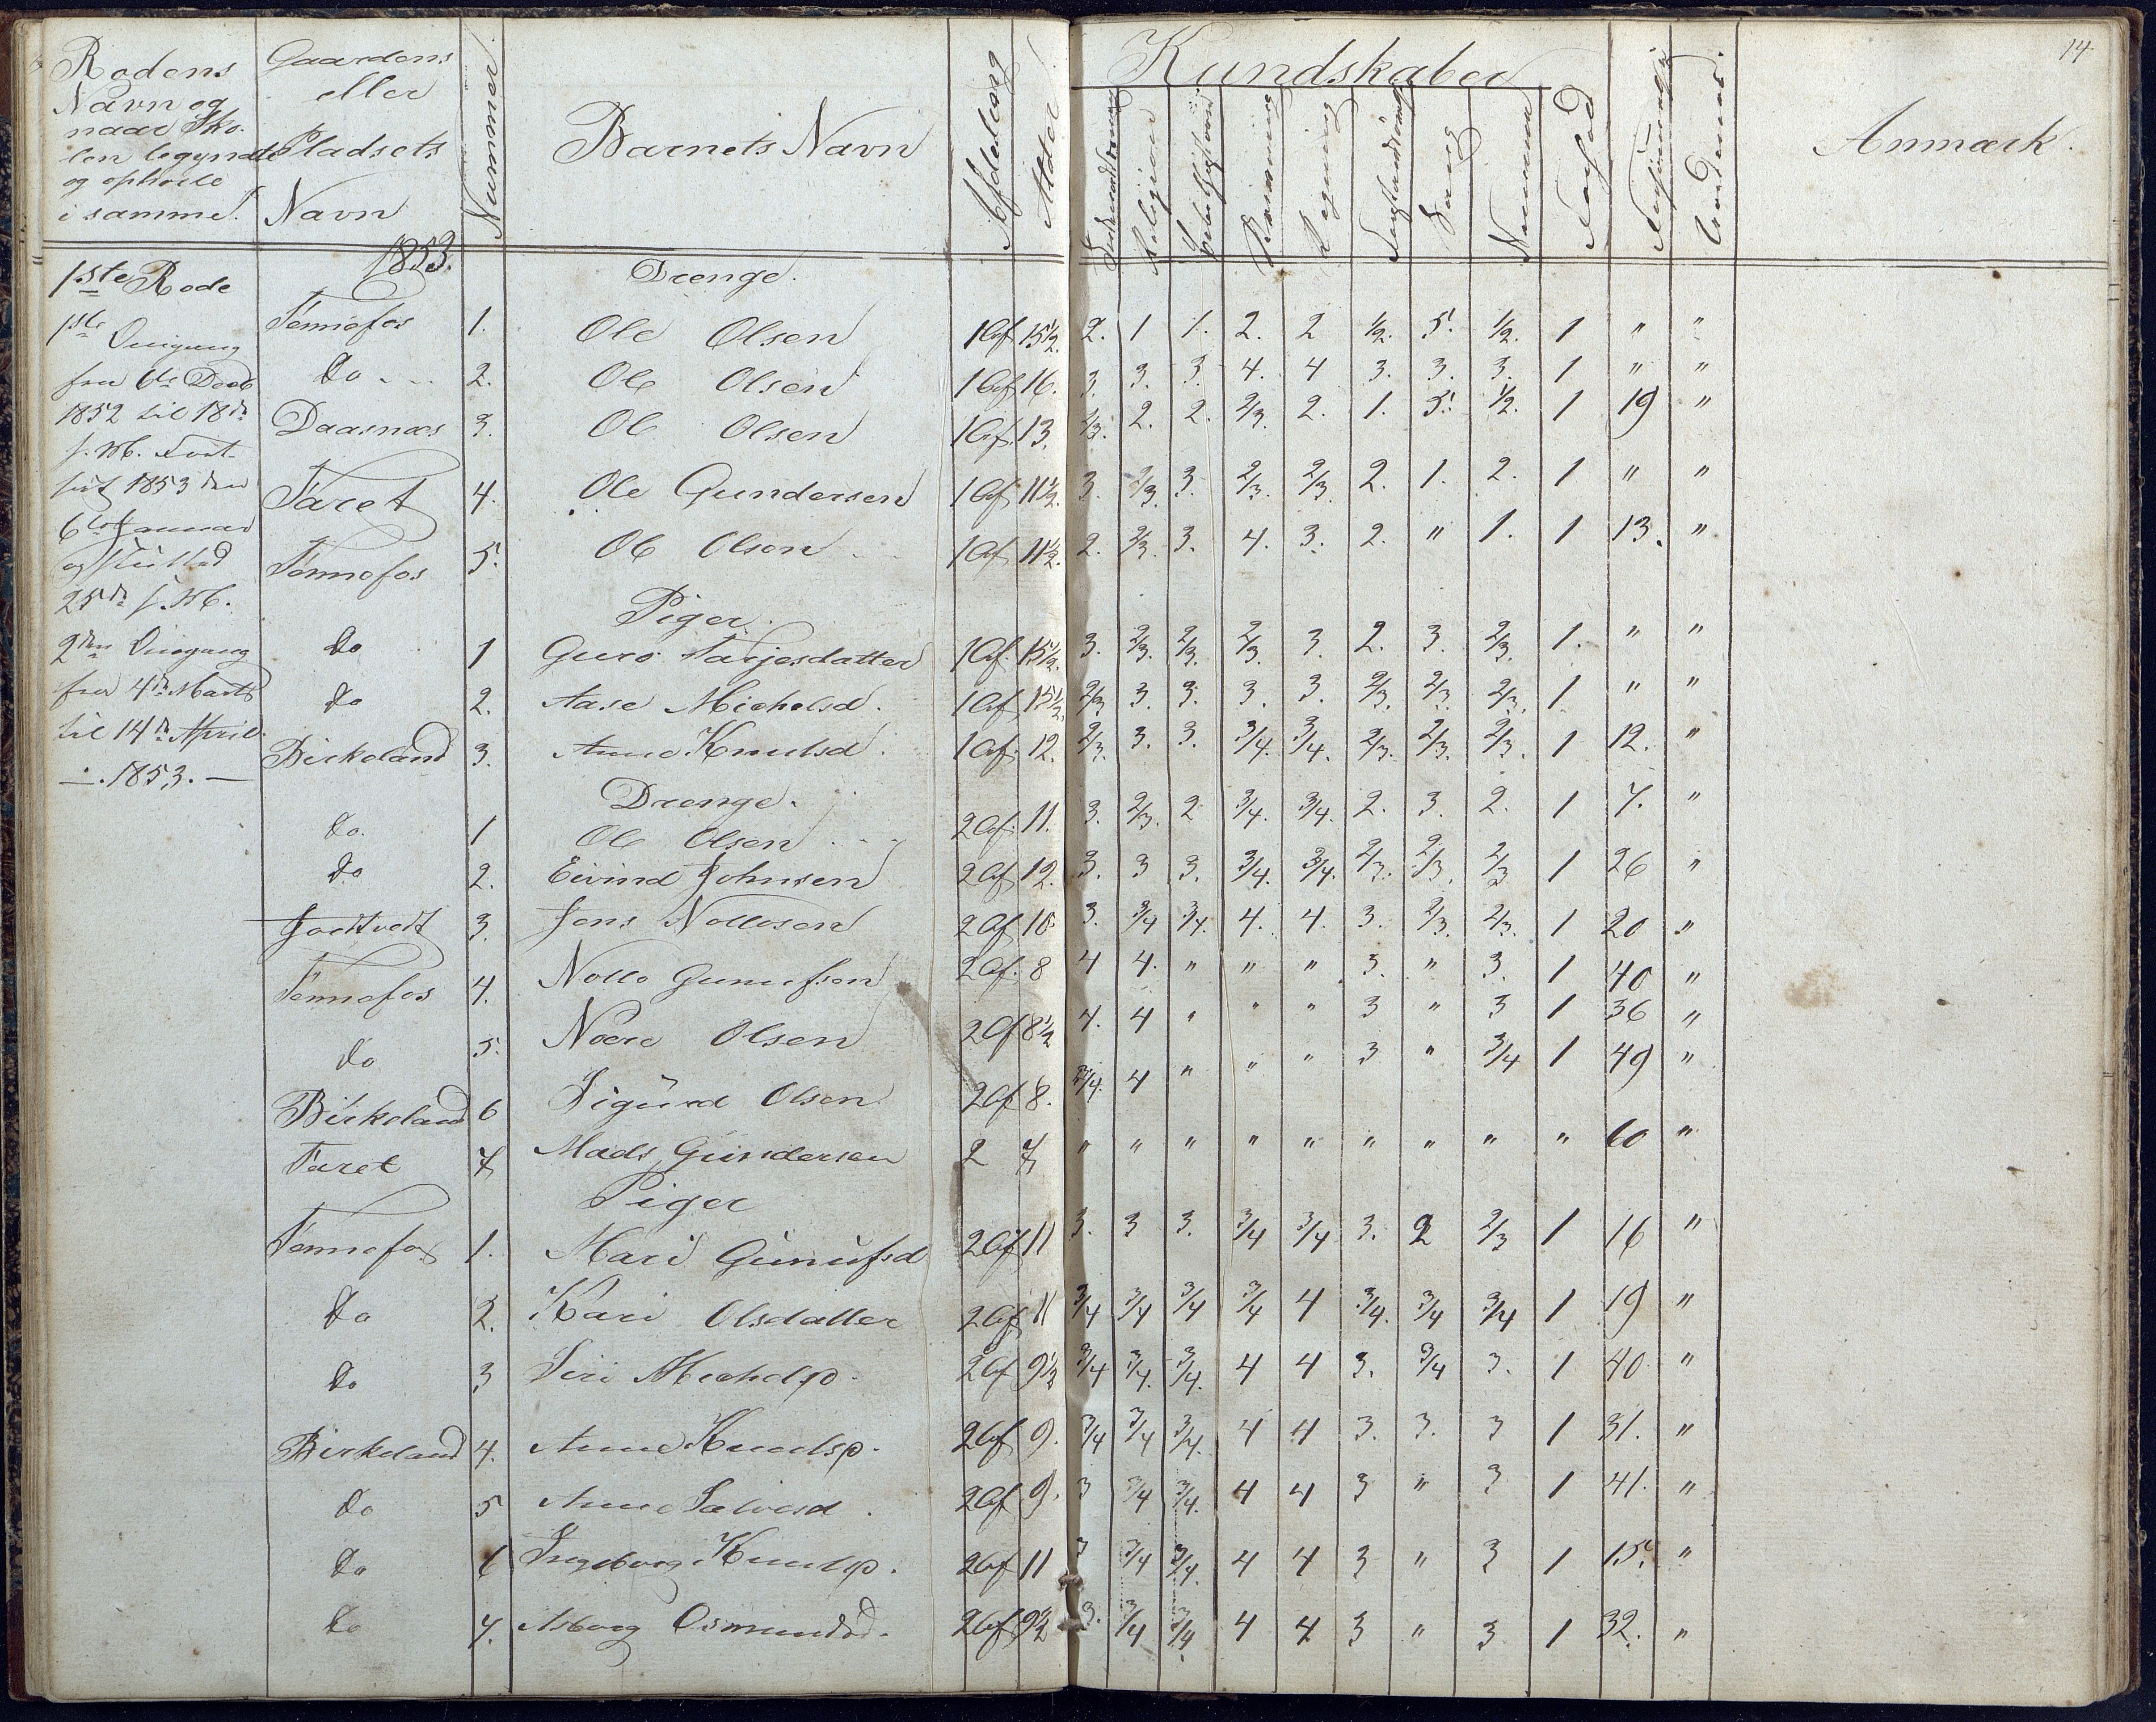 14.
Rodens Navn og naar Sko-len begyndte og ophørte i samme.
Gaardens eller Pladsets Navn
Nummer
Barnets Navn
Afdeling
Alder
Kundskaber
Religion
Skrivning
Regning
Sang
Anmærk.
1853.
1ste Rode
1ste Omgang
fra 6te Decb
1852 til 18de
s. M. Fort-
sat 1853 den
6te Januar
og sluttet
25de s. M.
2den Omgang
fra 4de Marts
til 14de April
1853.
Drenge.
Tennefos 1. Ole Olsen 1 Af 15½. 2. 1 1. 2. 2 ½. 5. ½. 1 " "
do 2. Ole Olsen 1 Af 16. 3. 3. 3. 4. 4 3. 3. 3. 1 " "
Daasnæs 3. Ole Olsen 1 Af. 13. 2/3. 2. 2. 2/3. 2. 1. 5. ½. 1 19 "
Faret 4. Ole Gundersen 1 Af. 11½. 3. 2/3. 3. 2/3. 2/3. 2. 1. 2. 1 " "
Tennefos 5. Ole Olsen 1 Af 11½. 2. 2/3. 3. 4. 3. 2. " 1. 1 13. "
Piger.
do 1 Guro Tarjesdatter 1 Af. 15½. 3. 2/3. 2/3. 2/3. 3. 2. 3. 2/3. 1. " "
do 2. Aase Michelsd. 1 Af 15½. 2/3 3. 3. 3. 3. 2/3. 2/3. 2/3. 1 " "
Birkeland 3. Anne Knutsd. 1 Af. 12. 2/3. 3. 3. 3/4. 3/4. 2/3. 2/3. 2/3. 1 12. "
Drenge.
do. 1 Ole Olsen 2 Af. 11. 3. 2/3. 2 3/4. 3/4. 2. 3. 2. 1 7. "
do 2. Eivind Johnsen 2 Af 12. 3. 3 3. 3/4. 3/4. 2/3. 2/3. 2/3 1 26 "
3. Jens Nottosen 2 Af 10 3. 3/4 3/4. 4. 4. 3. 2/3. 2/3. 1 20 "
Tennefos 4. Notto Gunufsen 2 Af. 8 4 4. " " " 3. " 3. 1 40 "
do 5. Olsen 2 Af 8½ 4. 4 " " " 3 " 3 1 36 "
Birkeland 6 Sigurd Olsen 2 Af 8. 3/4. 4 " " " 3 " 3/4 1 49 "
Faret 7 Mads Gundersen 2 7 " " " " " " " " " 60 "
Piger
Tennefos 1. Mari Gunufsd 2 Af 11 3. 3 3. 3/4 3/4 3. 2 2/3 1 16 "
do 2. Kari Olsdatter 2 Af 11 3/4 3/4 3/4 3/4 4 3/4. 3/4 3/4 1 19 "
do 3 Siri Michelsd. 2 Af 9½ 3/4 3/4. 3/4. 4 4 3. 3/4 3. 1 40 "
Birkeland 4. Anne Knutsd. 2 Af 9. 3/4 3/4 3/4. 4 4 3. 3. 3 1 31. "
do 5 Anne Salvesd. 2 Af 9. 3 3/4 3/4. 4 4 3 " 3 1 41. "
do 6 Ingeborg Knutsd. 2 Af 11 3 3/4 3/4. 4 4 3 " 3 1 15. "
do 7. Asborg Osmundsd. 2 Af 9½ 3. 3/4 3/4. 4 4 3 " 3 1 32. "